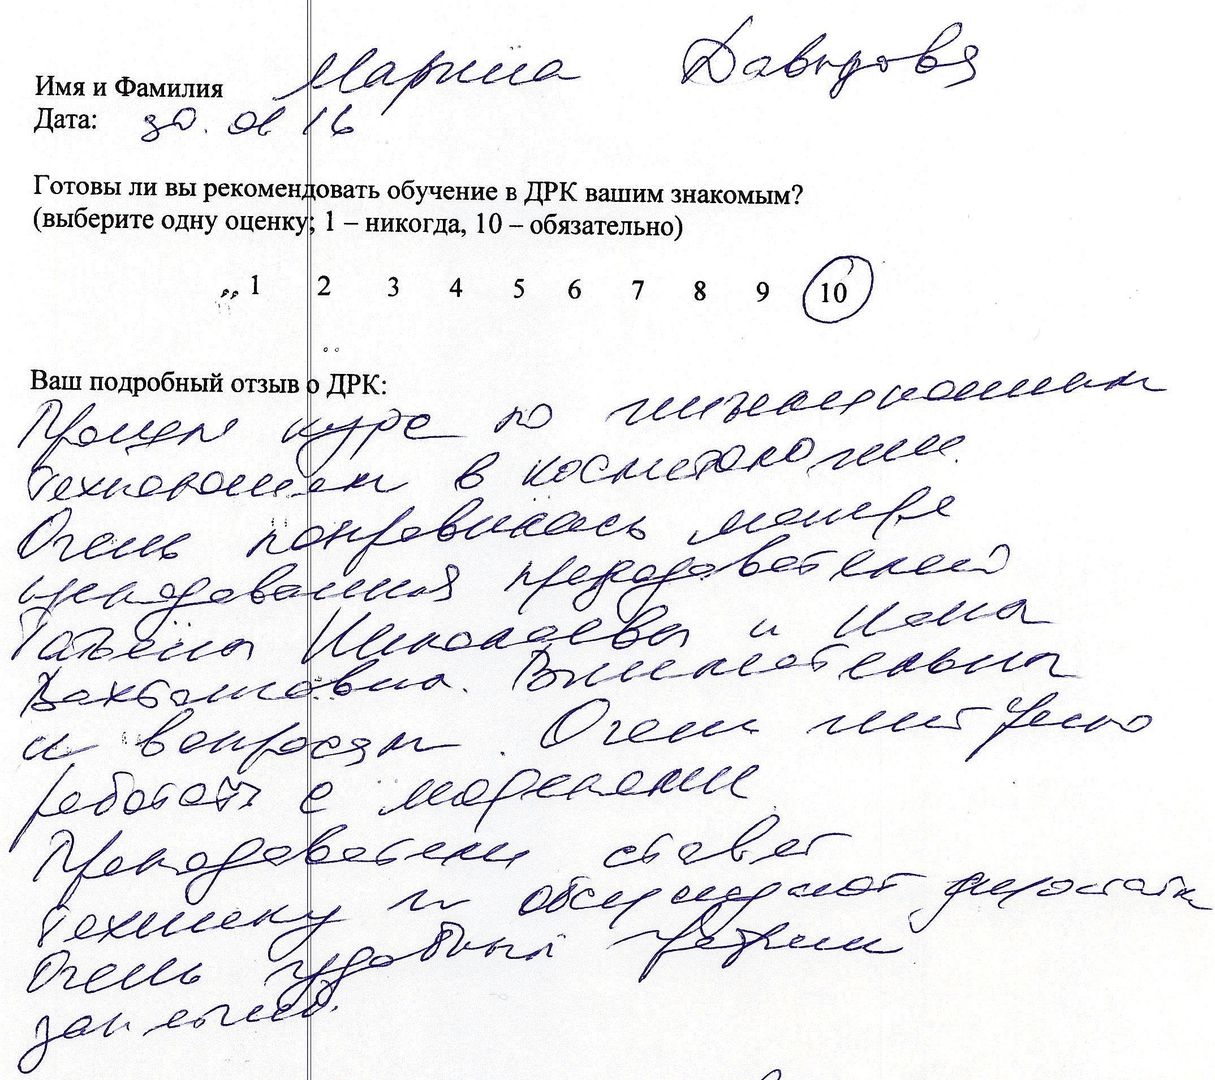 Имя и Фамилия Марина Давыдова
Дата: 30. 06 16
Готовы ли вы рекомендовать обучение в ДРК вашим знакомым?
(выберите одну оценку; 1 – никогда, 10 – обязательно)
1 2 3 4 5 6 7 8 9 10
Ваш подробный отзыв о ДРК:
Прошла курс по инъекционным
технологиям в косметологии.
Очень понравилась манера
преподавания преподавателей
Татьяны Николаевны и
Вахтанговна. Внимательны
и вопросам. Очень
работать с моделями
Преподаватели ставят
технику и обсуждают недостатки
Очень удобный график
занятий.